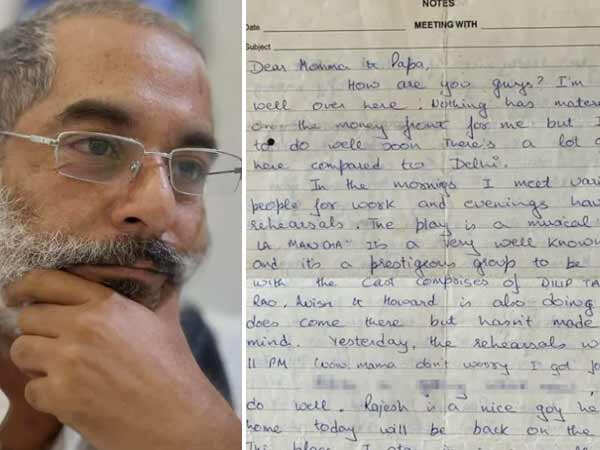 NOTES
Date MEETING WITH
Subject
Dear Momma & Papa,
How are you guys? I'm
well over here. Nothing has mater
on the money front for me but I
to do well soon There's a lot o
here compared to Delhi.
In the mornings I meet vari
people for work and evenings hav
rehearsals. The play is a musical "
LA MANCHA" It's a very well known
and it's a prestigeous group to be
with the cast comprises of DILIP TA
RAO. Avish & Howard is also doing
does come there but hasn't made
mind. Yesterday, the rehearsals w
11 PM (wow. mama don't worry I got
do well. Rajesh is a nice guy he
home today will be back on the
This place I